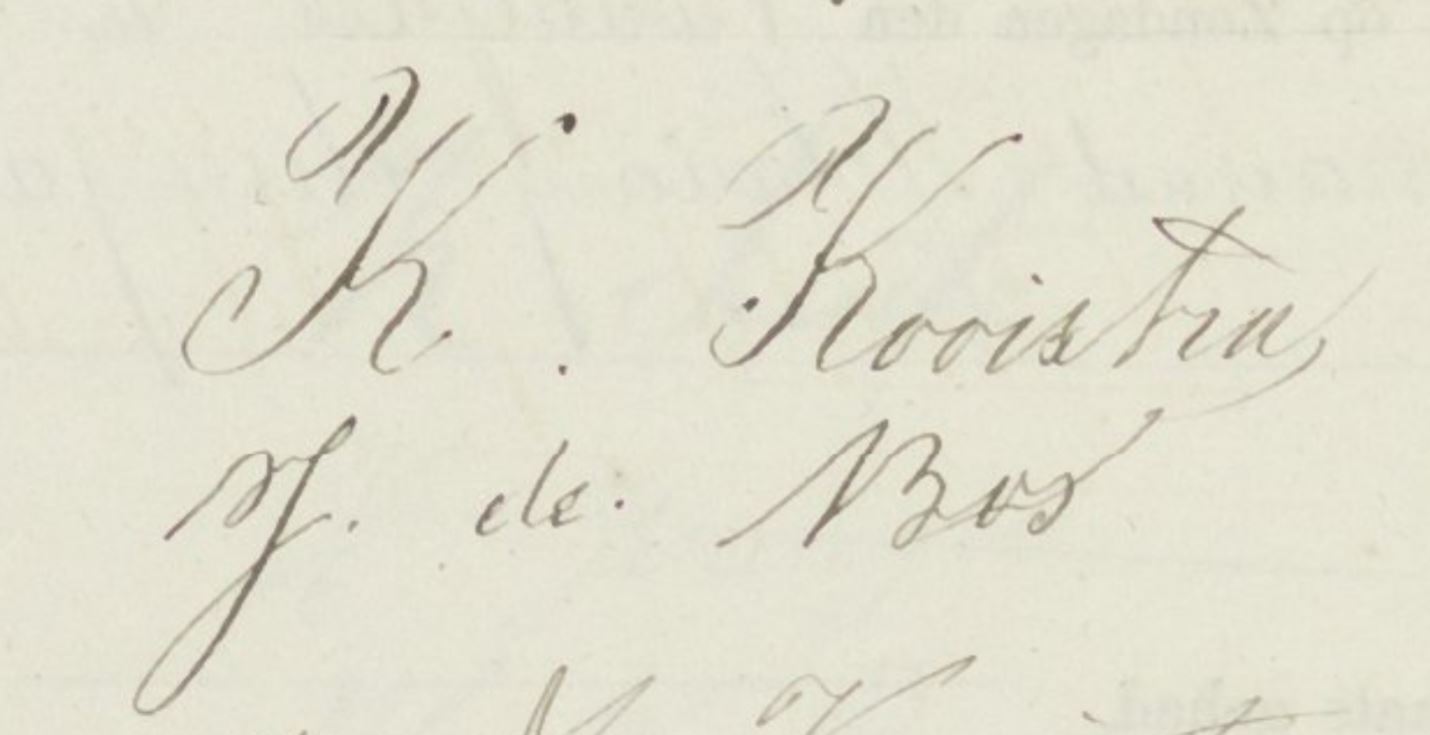 K. Kooistra
J. de. Bos